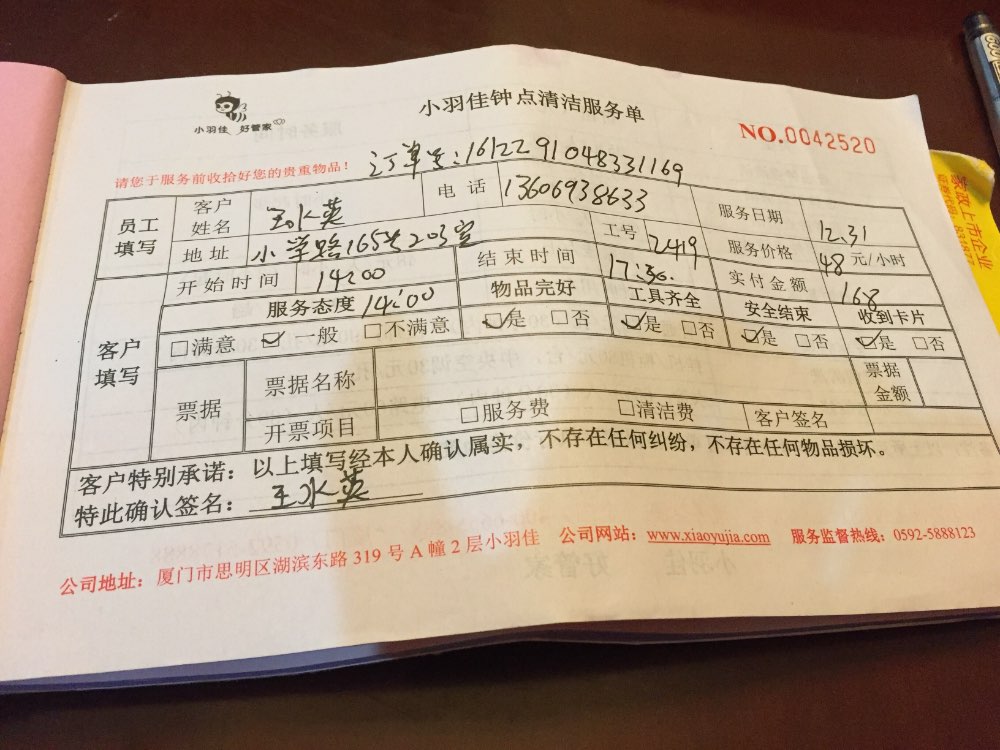 小羽佳 好管家
小羽佳钟点清洁服务单
NO.0042520
请您于服务前收拾好您的贵重物品！
订单号：1612291048331169
员工填写 客户姓名 王水英 电话 13606938633 服务日期 12.31
地址 小学路165号203室 工号 2419 服务价格 48元/小时
客户填写 开始时间 14:00 结束时间 17:30. 实付金额 168
服务态度 14:00 物品完好 工具齐全 安全结束 收到卡片
□满意 ☑一般 □不满意 ☑是 □否 ☑是 □否 ☑是 □否 ☑是 □否
票据 票据名称 票据金额
开票项目 □服务费 □清洁费 客户签名
客户特别承诺：以上填写经本人确认属实，不存在任何纠纷，不存在任何物品损坏。
特此确认签名：王水英
公司地址：厦门市思明区湖滨东路 319 号 A 幢 2 层小羽佳 公司网站：www.xiaoyujia.com 服务监督热线：0592-5888123